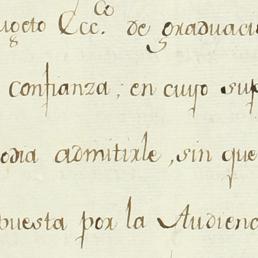 ugeto Ecc.co de graduaci
confianza; en cuyo sup
odia admitirle, sin que
puesta por la Audienc